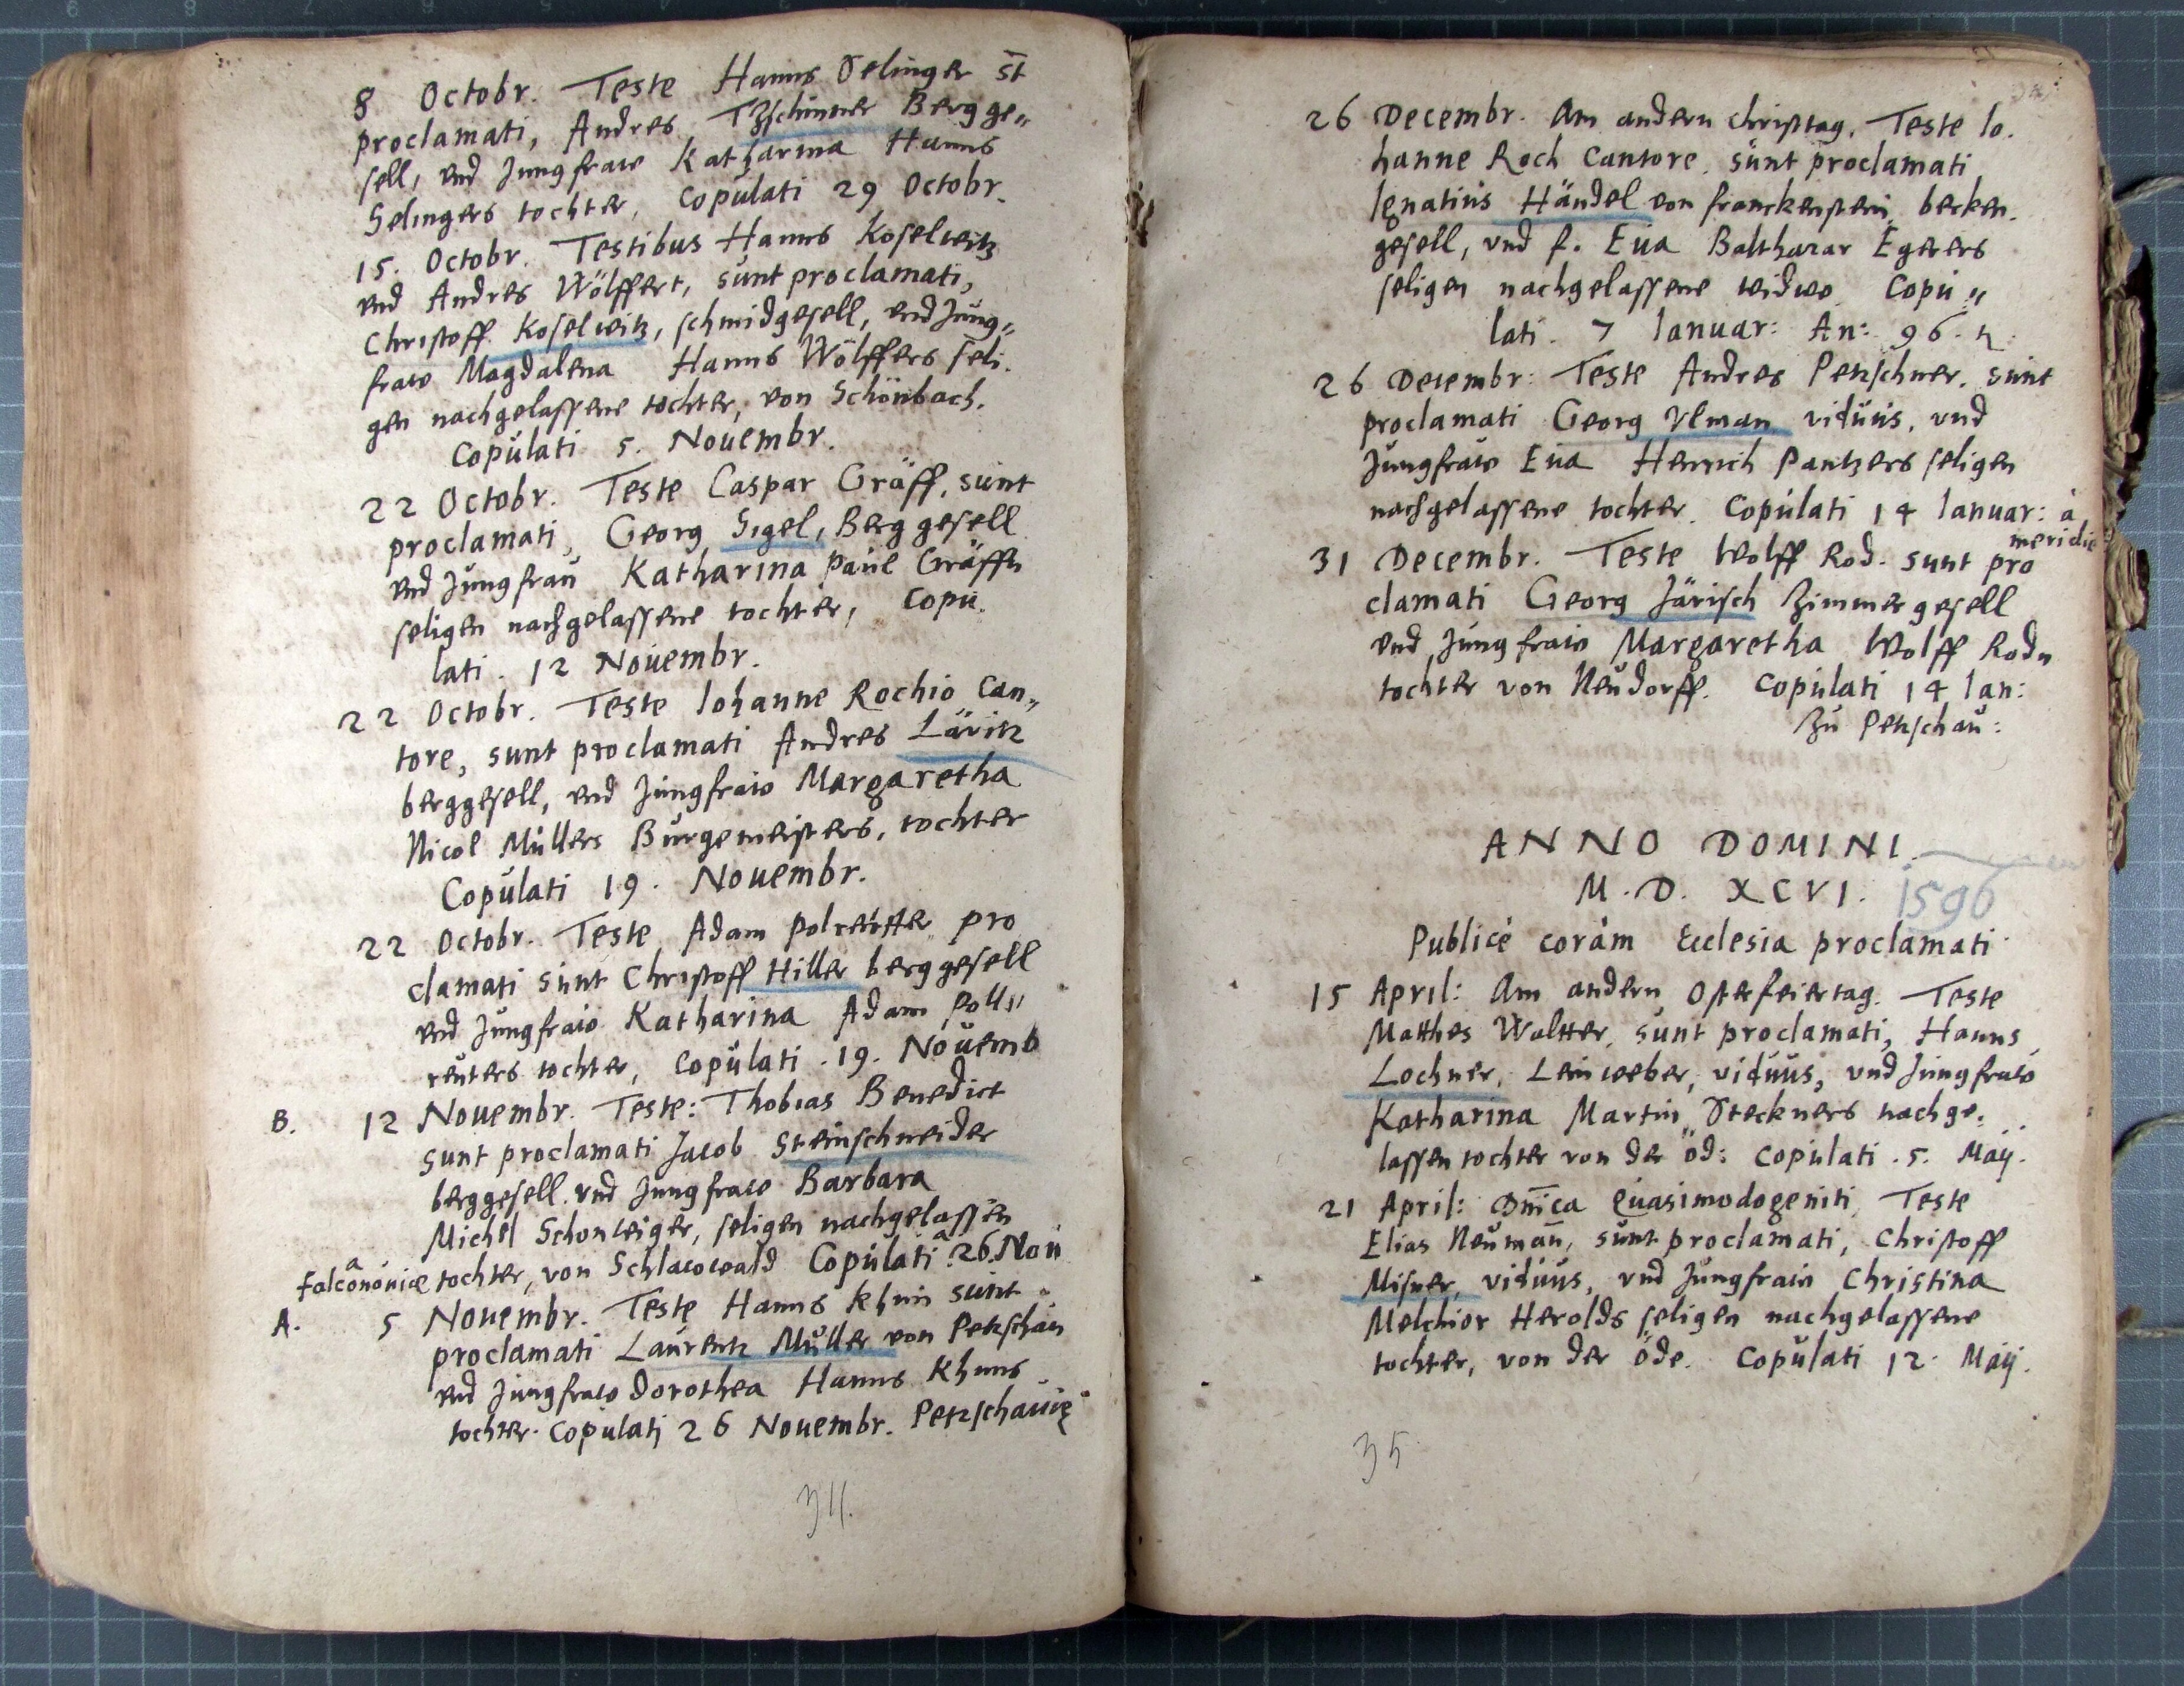 8 Octobr. Teste Hanns Selinger st̄
proclamati, Andres Tzschinner Bergge„
sell, vnd Jungfraw Katharina Hanns
Selingers tochter, Copulati 29 Octobr.
15. Octobr. Testibus Hanns Koselwitz
vnd Andres Wölffert, sunt proclamati,
Christoff Koselwitz, schmidgesell, vnd Jung„
fraw Magdalena Hanns Wölffers seli.
gen nachgelassene tochter, von Schönbach.
Copulati 5. Nouembr.
22 Octobr. Teste Caspar Gräff, sunt
proclamati, Georg Sigel, Berggesell
vnd Jungfrau Katharina Paul Gräffn
seligen nachgelassene tochter, Copu.
lati. 12 Nouembr.
22 Octobr. Teste Iohanne Rochio Can„
tore, sunt proclamati Andres Läritz
berggesell, vnd Jungfraw Margaretha
Nicol Müllers Burgemeisters, tochter
Copulati 19. Nouembr.
22 Octobr. Teste Adam Polreutter pro
clamati sunt Christoff Hiller berggesell
vnd Jungfraw Katharina Adam Poll„
reuters tochter, Copulati . 19. Nouemb
B. 12 Nouembr. Teste: Thobias Benedict
sunt proclamati Jacob Steinschneider
berggesell. vnd Jungfraw Barbara
Michel Schonweiger, seligen nachgelassen
Falconouiæ tochter, von Schlacowald Copulati 26. Nou
A. 5 Nouembr. Teste Hanns Khun sunt
proclamati Laurentz Müller von Petzschau
vnd Jungfraw Dorothea Hanns Khuns
tochter. Copulati 26 Nouembr. Petzschauię
34.
26 Decembr. Am andern Christtag. Teste Io.
hanne Roch Cantore. sunt proclamati
Ignatius Händel von Franckenstein, becken.
gesell, vnd f. Eua Balthazar Egerers
seligen nachgelassene widwe. Copu„
lati. 7 Ianuar: An: 96.
26 Decembr: Teste Andres Petzschner. sunt
proclamati Georg Vlman viduus, vnd
Jungfraw Eua Henrich Pantzers seligen
nachgelassene tochter. Copulati 14 Ianuar: à
meridie
31 Decembr. Teste Wolff Rod. sunt pro
clamati Georg Järisch Zimmergesell
vnd Jungfraw Margaretha Wolff Rodn
tochter von Neudorff. Copulati 14 Ian:
Zu Petzschau:
ANNO DOMINI.
M. D. XCVI. 1596
Publicè coràm Ecclesia proclamati
15 April: Am andern Osterfeiertag. Teste
Matthes Waltter, sunt proclamati, Hanns
Lochner, Leinweber, viduus, vnd Jungfraw
Katharina Martin Steckners nachge.
lassen tochter von der öd: Copulati . 5. Maij.
21 April: Dn̄ica Quasimodogeniti, Teste
Elias Neuman̄, sunt proclamati, Christoff
Misner, viduus, vnd Jungfraw Christina
Melchior Herolds seligen nachgelassene
tochter, von der öde. Copulati 12. Maij.
35